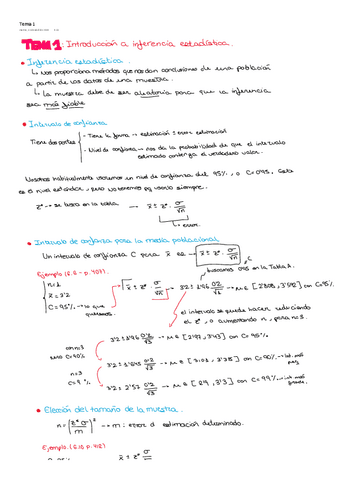 Tema 1
TEMA 1: Introducción a inferencia estadística.
• Inferencia estadística
↳ Nos proporciona métodos que nos dan conclusiones de una población
a partir de los datos de una muestra.
↳ La muestra debe de ser aleatoria para que la inferencia
sea más fiable
• Intervalo de confianza
Tiene dos partes
- Tiene la forma → estimación ± error estimación
- Nivel de confianza → nos da la probabilidad de que el intervalo
estimado contenga el verdadero valor.
Nosotros habitualmente usaremos un nivel de confianza del 95%, o C=0'95. Este
es el nivel estándar, pero no tenemos pq usarlo siempre.
z* → se busca en la tabla → x̄ ± z* · σ/√n
↳ error.
• Intervalo de confianza para la media poblacional
Un intervalo de confianza C para x̄ es → x̄ ± z* · σ/√n
buscamos 0'95 en la Tabla A.
n=1
x̄ = 3'2
C=95% → lo que
queramos.
x̄ ± z* · σ/√n → 3'2 ± 1'96 0'2/√1
con C=95%
el intervalo se puede hacer reduciendo
el z*, o aumentando n, para n=3.
con n=3
3'2 ± 1'96 0'2/√3 → μ ∈ [2'97, 3'43] con C=95%
n=3
con C=90%
con C=99% → int. más
grande.
• Elección del tamaño de la muestra.
n = (z* σ/m)² → m: error d estimación determinado.
x̄ ± z* σ